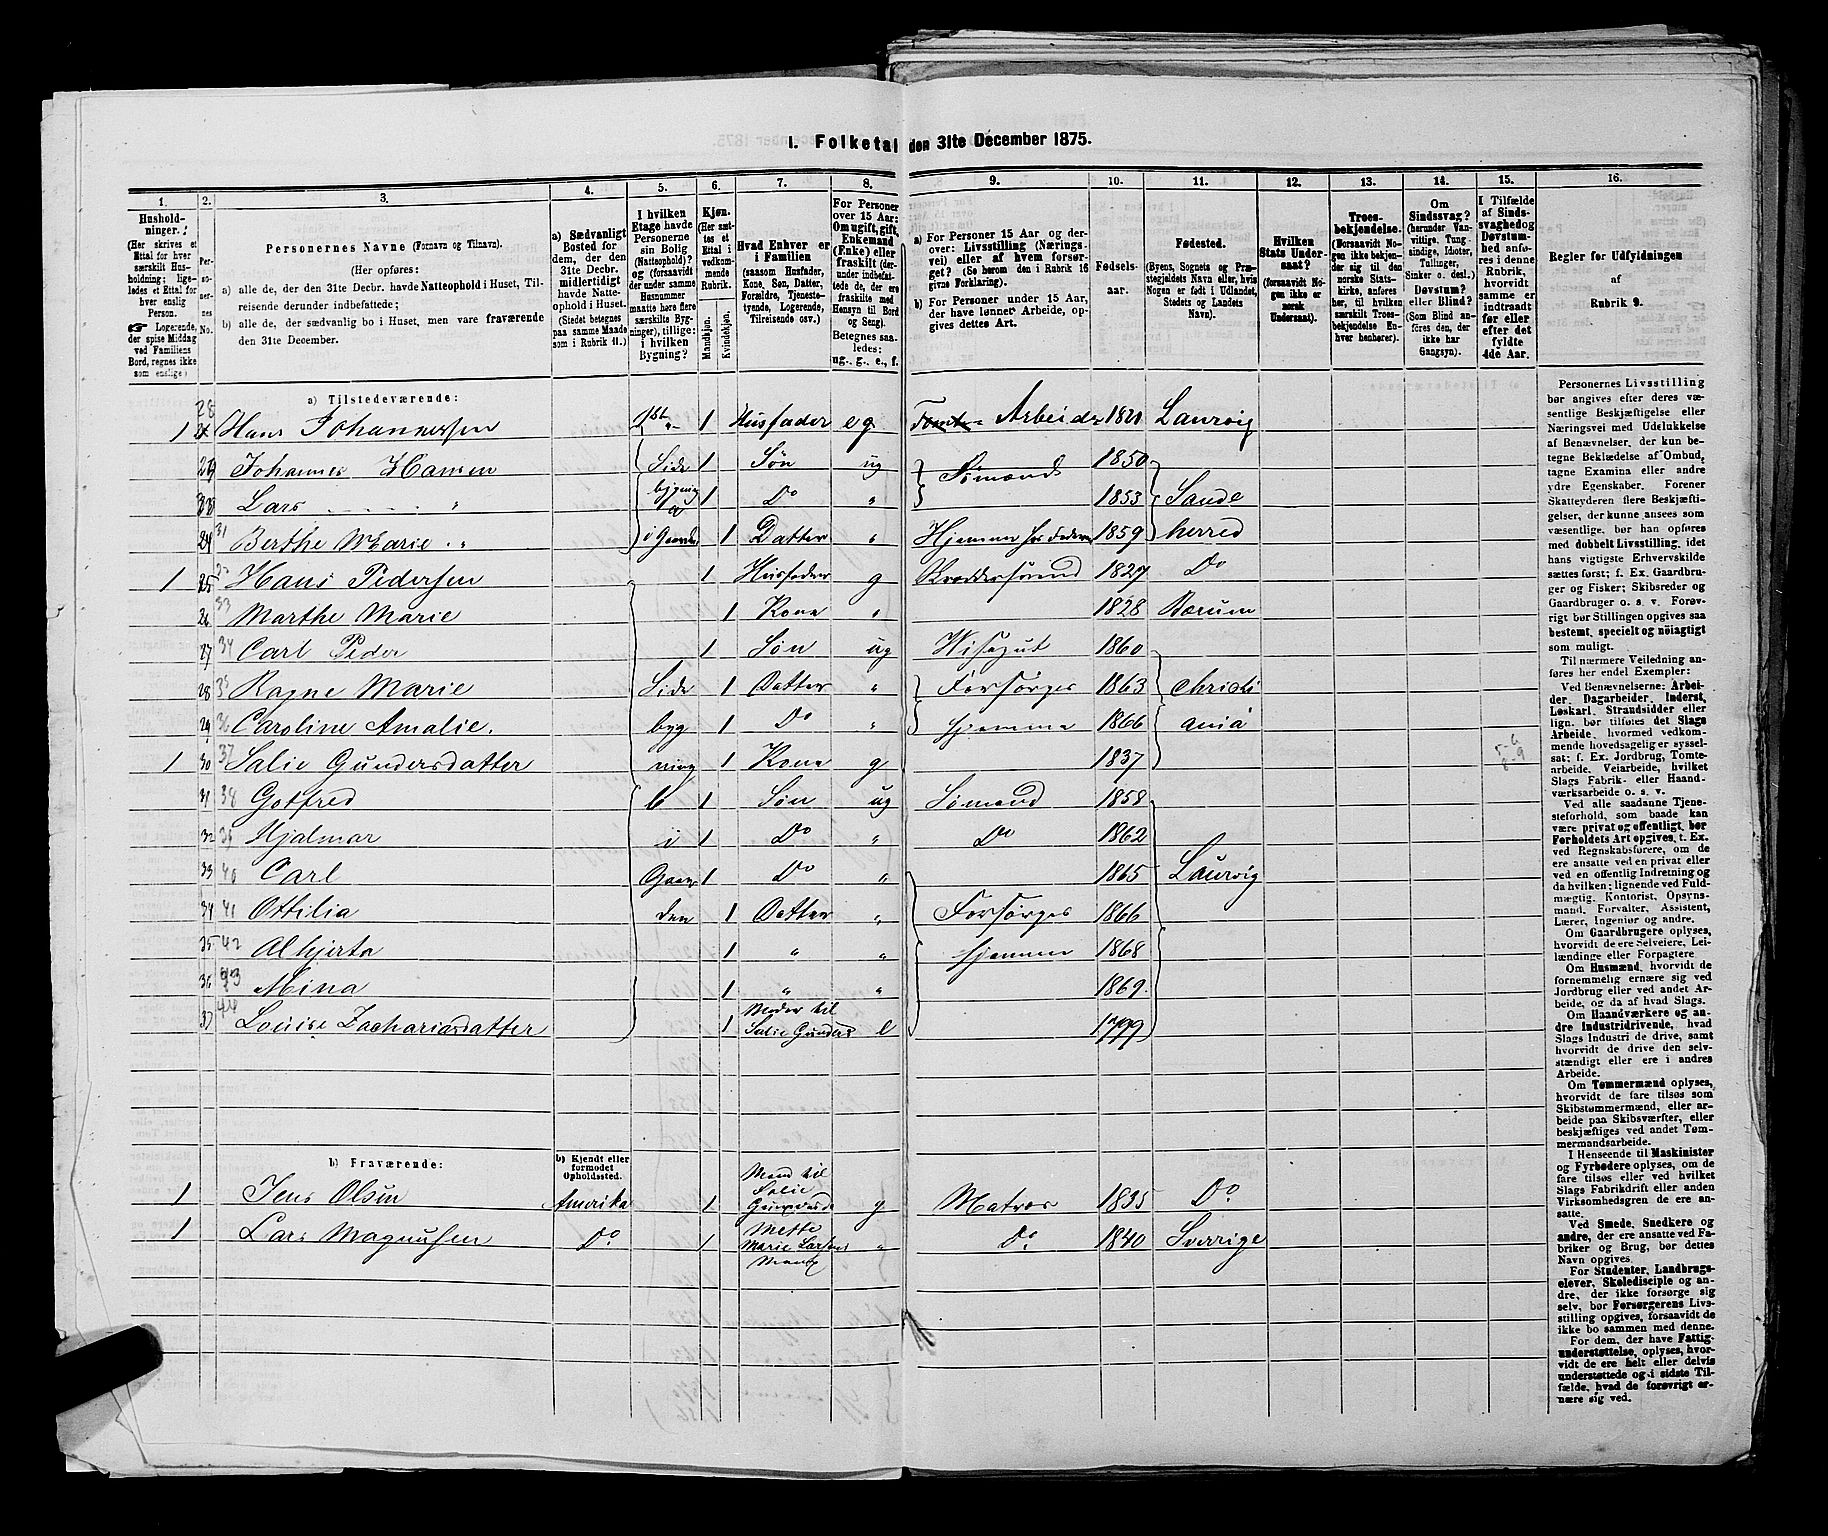 I. Folketal den 31te December 1875.
1. 2. 3. 4. 5. 6. 7. 8. 9. 10. 11. 12. 13. 14. 15. 16.
Hushold-
ninger.
(Her skrives et
Ettal for hver
særskilt Hus-
holdning; lige-
ledes et Ettal for
hver enslig
Person.
☞ Logerende,
der spise Middag
ved Familiens
Bord, regnes ikke
som enslige)
Per-
so-
ner-
nes
No.
Personernes Navne (Fornavn og Tilnavn).
(Her opføres:
a) alle de, der den 31te Decbr. havde Natteophold i Huset, Til-
reisende derunder indbefattede;
b) alle de, der sædvanlig bo i Huset, men vare fraværende
den 31te December.
a) Sædvanligt
Bosted for
dem, der den
31te Decbr.
midlertidigt
havde Natte-
ophold i Huset.
(Stedet betegnes
paa samme Maade
som i Rubrik 11.)
I hvilken
Etage havde
Personerne
sin Bolig
(Natteophold)?
og (forsaavidt
der under samme
Husnummer
maatte høre flere
særskilte Byg-
ninger), tillige:
i hvilken
Bygning?
Kjøn.
(Her sæt-
tes et
Ettal i
vedkom-
mende
Rubrik.
Mandkjøn.
Kvindekjøn.
Hvad Enhver er
i Familien
(saasom Husfader,
Kone, Søn, Datter,
Forældre, Tjeneste-
tyende, Logerende,
Tilreisende osv.)
For Personer
over 15 Aar:
Om ugift, gift,
Enkemand
(Enke) eller
fraskilt (der-
under indbefat-
tede de, der ere
fraskilte med
Hensyn til Bord
og Seng).
Betegnes saa-
ledes:
ug., g., e., f.
a) For Personer 15 Aar og der-
over: Livsstilling (Nærings-
vei) eller af hvem forsør-
get? (Se herom den i Rubrik 16
givne Forklaring).
b) For Personer under 15 Aar,
der have lønnet Arbeide, op-
gives dettes Art.
Fødsels-
aar.
Fødested.
(Byens, Sognets og Præ-
stegjeldets Navn eller, hvis
Nogen er født i Udlandet,
Stedets og Landets
Navn).
Hvilken
Stats Under-
saat?
(forsaavidt No-
gen ikke er
norsk
Undersaat).
Troes-
bekjendelse.
(Forsaavidt No-
gen ikke bekjen-
der sig til den
norske Stats-
kirke, anføres
her, til hvilken
særskilt Troes-
bekjendelse En-
hver henhører).
Om
Sindssvag?
(herunder Van-
vittige, Tung-
sindige, Idioter,
Tullinger,
Sinker o. desl.)
Døvstum?
eller Blind?
(Som Blind an-
føres den, der
ikke har
Gangsyn).
I Tilfælde
af Sinds-
svaghed og
Døvstum-
hed anfø-
res i denne
Rubrik,
hvorvidt
samme er
indtraadt
før eller
efter det
fyldte
4de Aar.
Regler for Udfyldningen
af
Rubrik 9.
a) Tilstedeværende:
1 28 Hans Johannessen 1st 1 Husfader e g Tomt- Arbeider 1821 Laurvig
29 Johannes Hansen Side 1 Søn ug Sømænd 1850
Lars " bygning a 1 Do " 1853 Sande
24 31 Berthe Marie " i Gaarden 1 Datter " Hjemme hos Faderen 1859 herred
1 25 Hans Pedersen 1 Husfader g 1827 Do
26 33 Marthe Marie 1 Kone " 1828 Bærum
27 34 Carl Peder 1 Søn ug Visegut 1860
28 35 Ragne Marie Side 1 Datter " Forsørges 1863 Christi
29 36 Caroline Amalie. byg 1 Do " hjemme 1866 ania
1 30 37 Salie Gundersdatter ning 1 Kone g 1837 5-6 8-9
31 38 Gotfred b 1 Søn ug Sømand 1858
32 39 Hjalmar i 1 Do " Do 1862
33 40 Carl Gaar 1 Do " 1865 Laurvig
34 41 Ottilia den 1 Datter " Forsørges 1866
35 42 Alhjerta 1 " " hjemme 1868
36 43 Mina 1 " " 1869.
37 44 Louise Zachariasdatter 1 Moder til Salie Gunders e 1799
b) Fraværende:
b) Kjendt eller
formodet
Opholdssted.
1 Jens Olsen Amerika 1 Mand til Salie g Matros 1835 Do
1 Lars Magnusen Do 1 Mette Marie Larsens Mand " Do 1840 Sverrige
Personernes Livsstilling
bør angives efter deres væ-
sentlige Beskjæftigelse eller
Næringsvei med Udelukkelse
af Benævnelser, der kun be-
tegne Beklædelse af Ombud,
tagne Examina eller andre
ydre Egenskaber. Forener
Skatteyderen flere Beskjæfti-
gelser, der kunne ansees som
væsentlige, bør han opføres
med dobbelt Livsstilling, idet
hans vigtigste Erhvervskilde
sættes først; f. Ex. Gaardbru-
ger og Fisker; Skibsreder og
Gaardbruger o. s. v. Forøv-
rigt bør Stillingen opgives saa
bestemt, specielt og nøiagtigt
som muligt.
Til nærmere Veiledning an-
føres her endel Exempler:
Ved Benævnelserne: Arbei-
der, Dagarbeider, Inderst,
Løskarl, Strandsidder eller
lign. bør tilføtes det Slags
Arbeide, hvormed vedkom-
mende hovedsagelig er syssel-
sat; f. Ex. Jordbrug, Tomte-
arbeide, Veiarbeide, hvilket
Slags Fabrik- eller Haand-
værksarbeide o. s. v.
Ved alle saadanne Tjene-
steforhold, som baade kan
være privat og offentligt, bør
Forholdets Art opgives, t. Ex.
ved Regnskabsførere, om de
ere ansatte ved en privat eller
en offentlig Indretning og da
da hvilken; lignende ved Fuld-
mægtig, Kontorist, Opsyns-
mand, Forvalter, Assistent,
Lærer, Ingeniør og andre.
Om Gaardbrugere oplyses,
hvorvidt de ere Selveiere, Lei-
lændinge eller Forpagtere.
Om Husmænd, hvorvidt de
fornemmelig ernære sig ved
Jordbrug eller ved andet Ar-
beide, og da af hvad Slags.
Om Haandværkere og an-
dre Industridrivende, hvad
Slags Industri de drive, samt
hvorvidt de drive den selv-
stændigt eller ere i andres
Arbeide.
Om Tømmermænd oplyses,
hvorvidt de fare tilsøs som
Skibstømmermænd, eller ar-
beide paa Skibsværfter, eller
beskjæftiges ved andet Tøm-
mermandsarbeide.
I Henseende til Maskinister
og Fyrbødere oplyses, om de
fare tilsøs eller ved hvilket
Slags Fabrikdrift eller anden
Virksomhedsgren de ere an-
satte.
Ved Smede, Snedkere og
andre, der ere ansatte ved Fa-
briker og Brug, bør dettes
Navn opgives.
For Studenter, Landbrugs-
elever, Skoledisciple og an-
dre, der ikke forsørge sig
selv, bør Forsørgerens Livs-
stilling opgives, forsaavidt de
ikke bo sammen med denne.
For dem, der have Fattig-
understøttelse, oplyses, hvor-
vidt de ere helt eller delvis
understøttede og i sidste Til-
fælde, hvad de forøvrigt er-
nære sig ved.